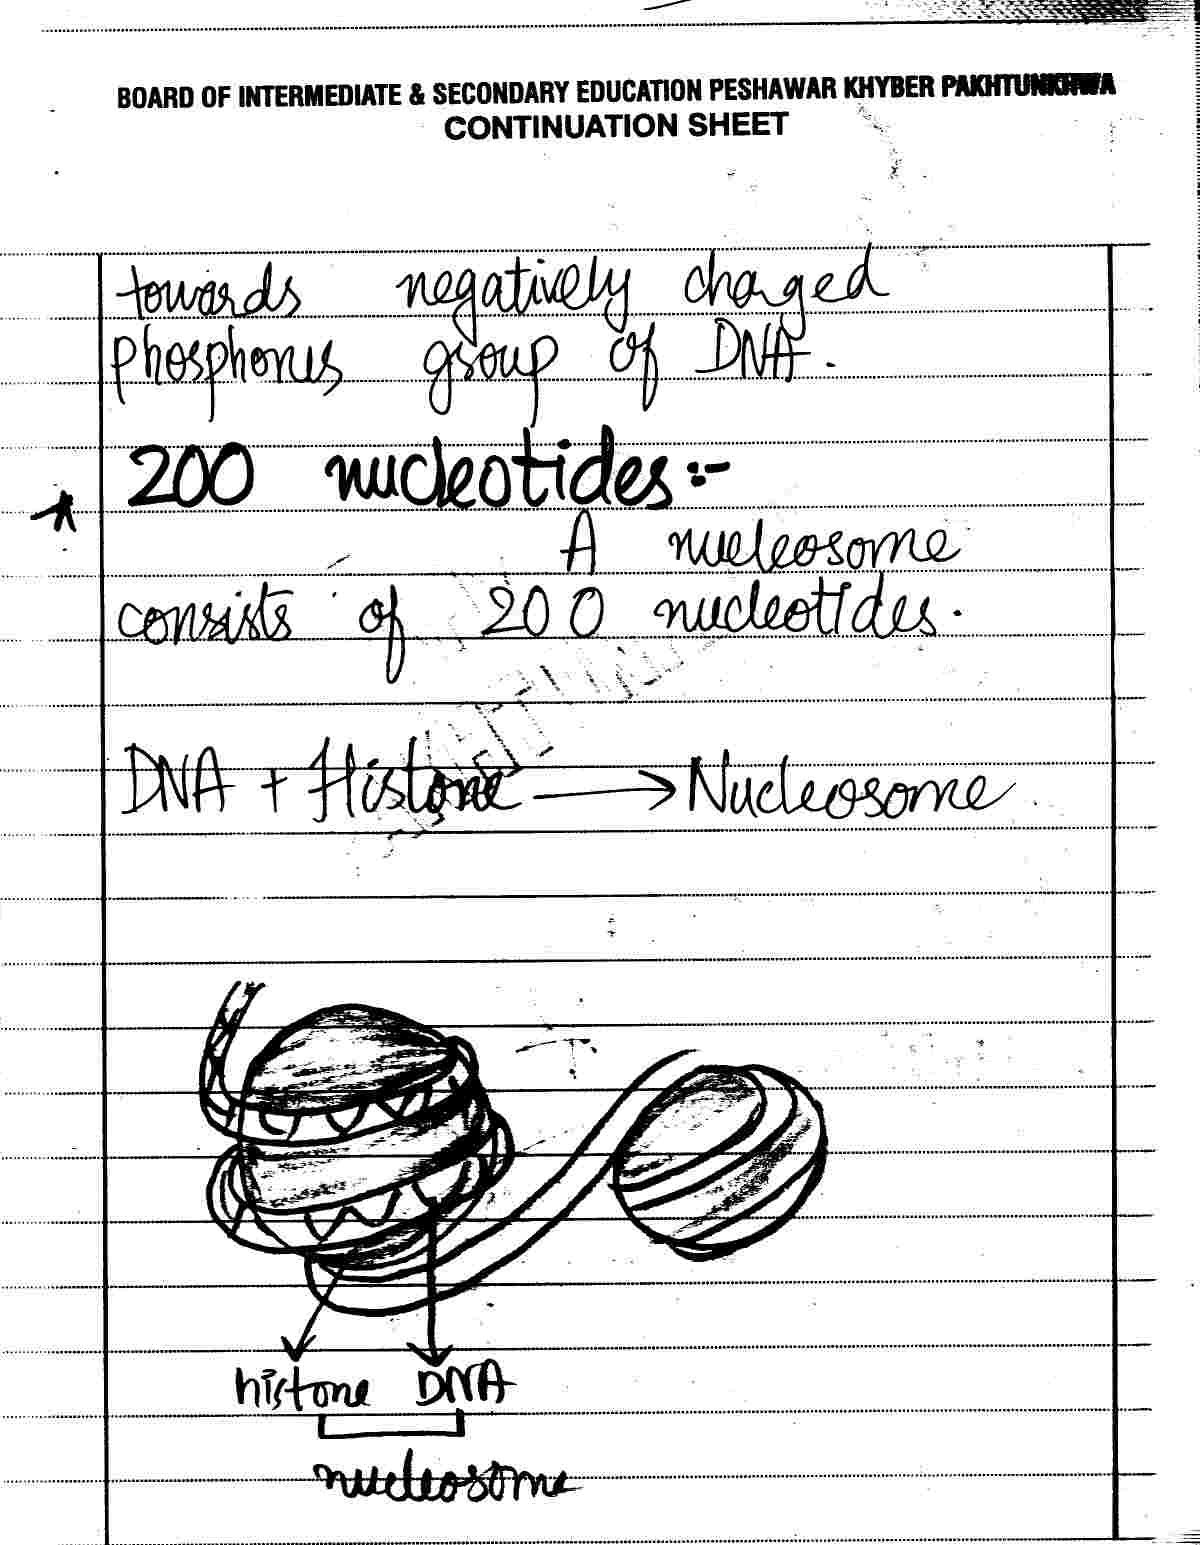 BOARD OF INTERMEDIATE & SECONDARY EDUCATION PESHAWAR KHYBER PAKHTUNKHWA
CONTINUATION SHEET
towards negatively charged
phosphorus group of DNA.
200 nucleotides:-
A nucleosome
consists of 200 nucleotides.
DNA + Histone → Nucleosome
histone DNA
nucleosome